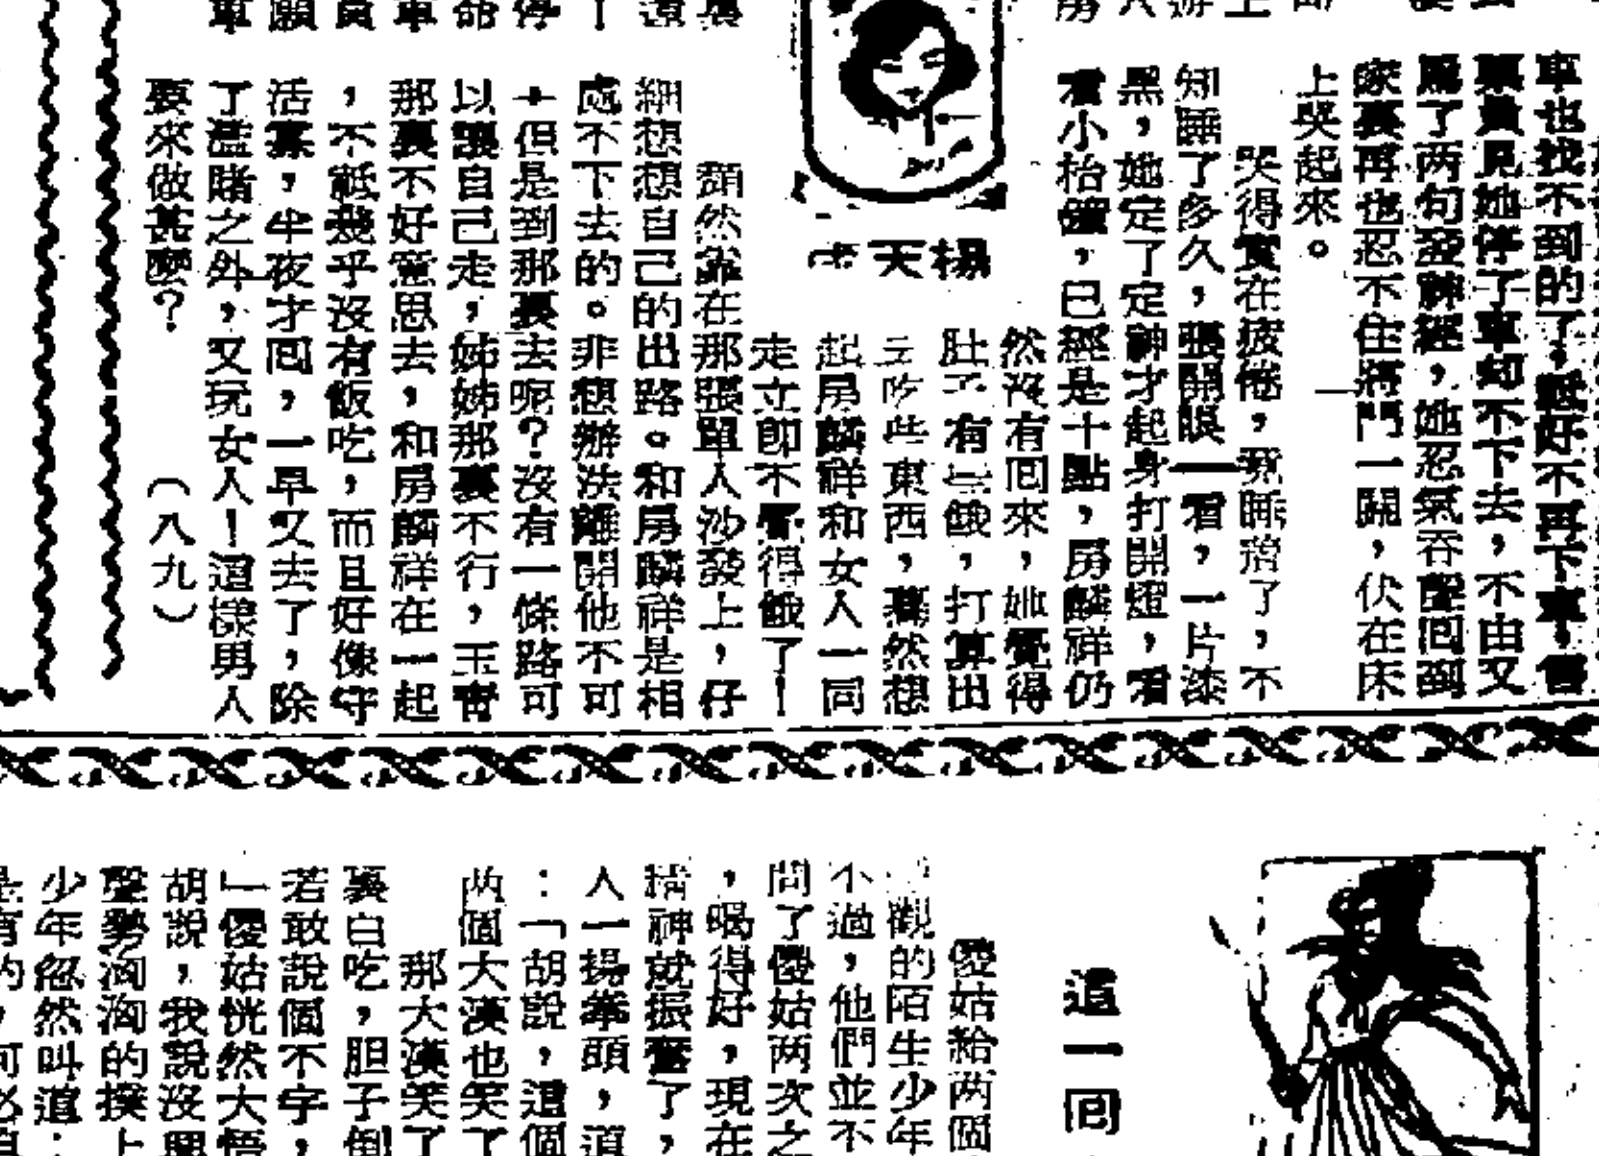 車也找不到的了，還好不再下車，售
票員見她停了車却不下去，不由又
罵了两句發神經，她忍氣吞聲囘到
家裏再也忍不住將門一關，伏在床
上哭起來。
哭得實在疲倦，竟睡着了，不
知睡了多久，張開眼一看，一片漆
黑，她定了定神才起身打開燈，看
看小枱鐘，已經是十點，房麟祥仍
然沒有囘來，她覺得
肚子有些餓，打算出
去吃些東西，驀然想
起房麟祥和女人一同
走立卽不覺得餓了！
頹然靠在那張單人沙發上，仔
細想想自己的出路。和房麟祥是相
處不下去的。非想辦法離開他不可
但是到那裏去呢？沒有一條路可
以讓自己走，姊姊那裏不行，玉
那裏不好意思去，和房麟祥在一起
，不祗幾乎沒有飯吃，而且好像守
活寡，半夜才囘，一早又去了，除
了濫賭之外，又玩女人！這樣男人
要來做甚麼？
（八九）
楊天
這一囘
儍姑給两個
觀的陌生少年
不過，他們並不
問了儍姑两次之
，喝得好，現在
精神就振奮了，
人一揚拳頭，道
：「胡說，這個
两個大漢也笑了
那大漢笑了
裏白吃，胆子倒
若敢說個不字，
」儍姑恍然大悟
胡說，我說沒
聲勢洶洶的撲上
少年忽然叫道：